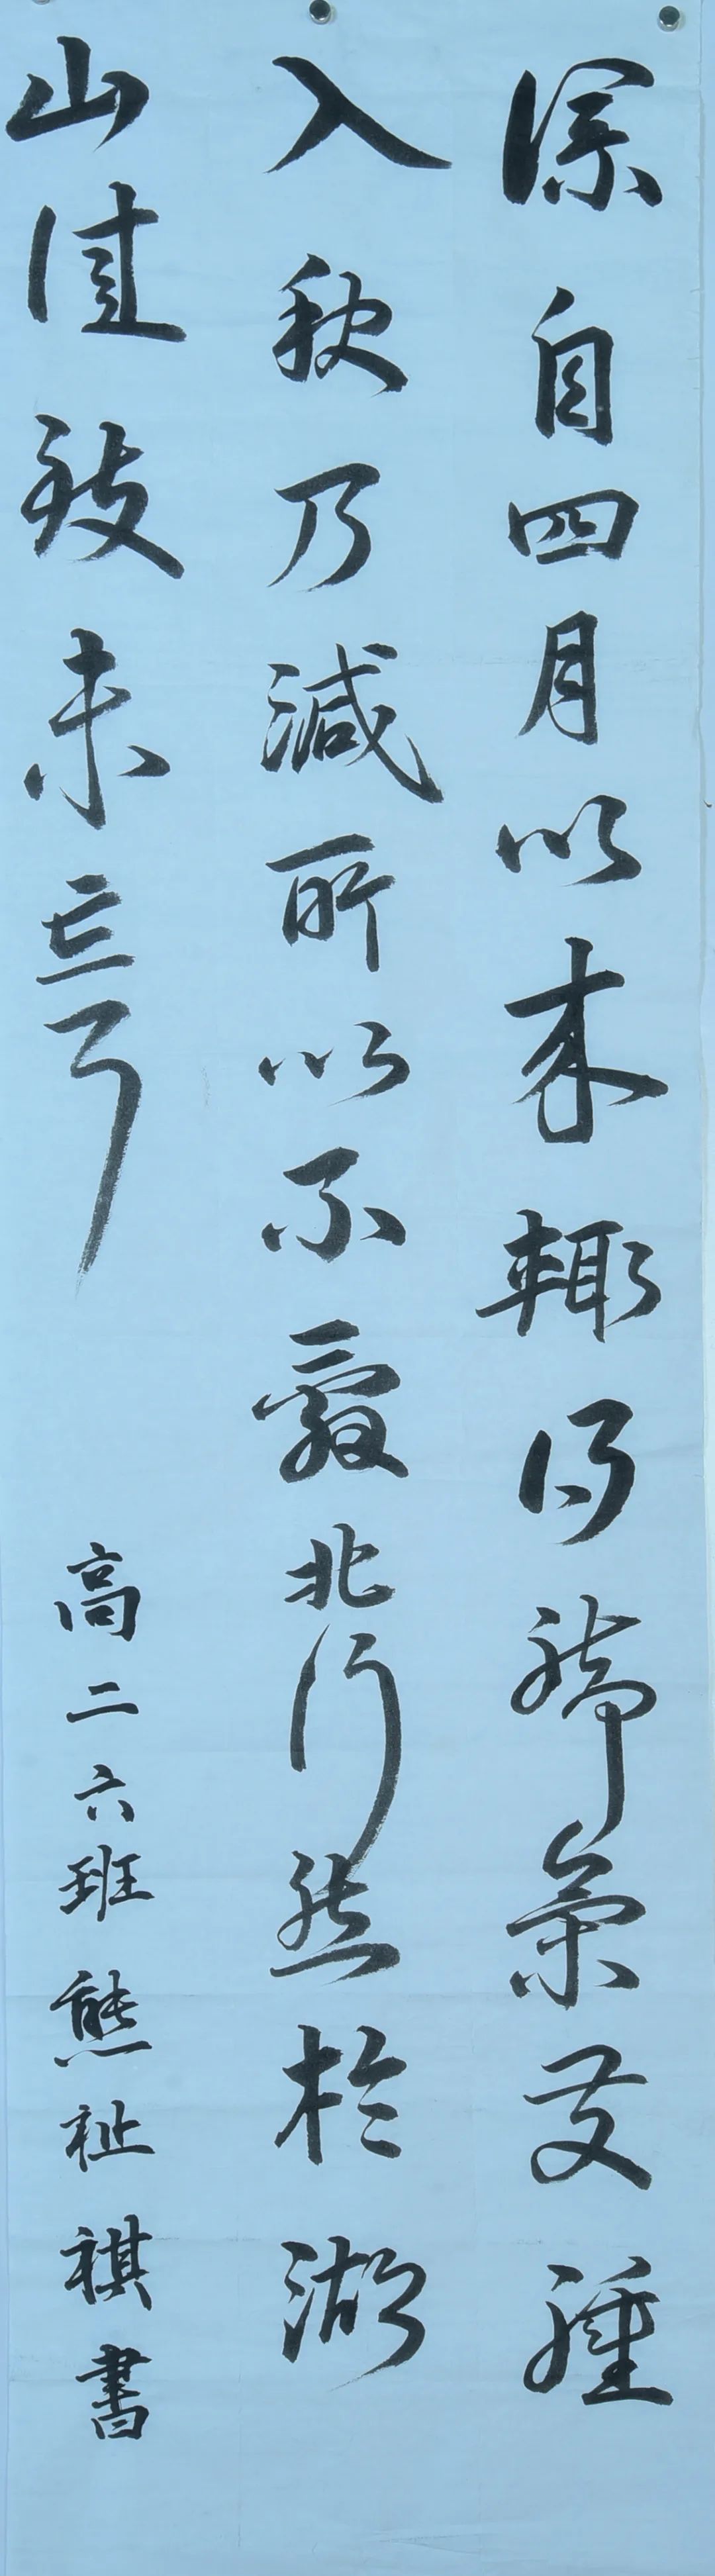 深自四月以來輒得腳氣發腫
入秋乃減所以不愛北行然於湖
山佳致未忘了
高二六班熊祉祺書